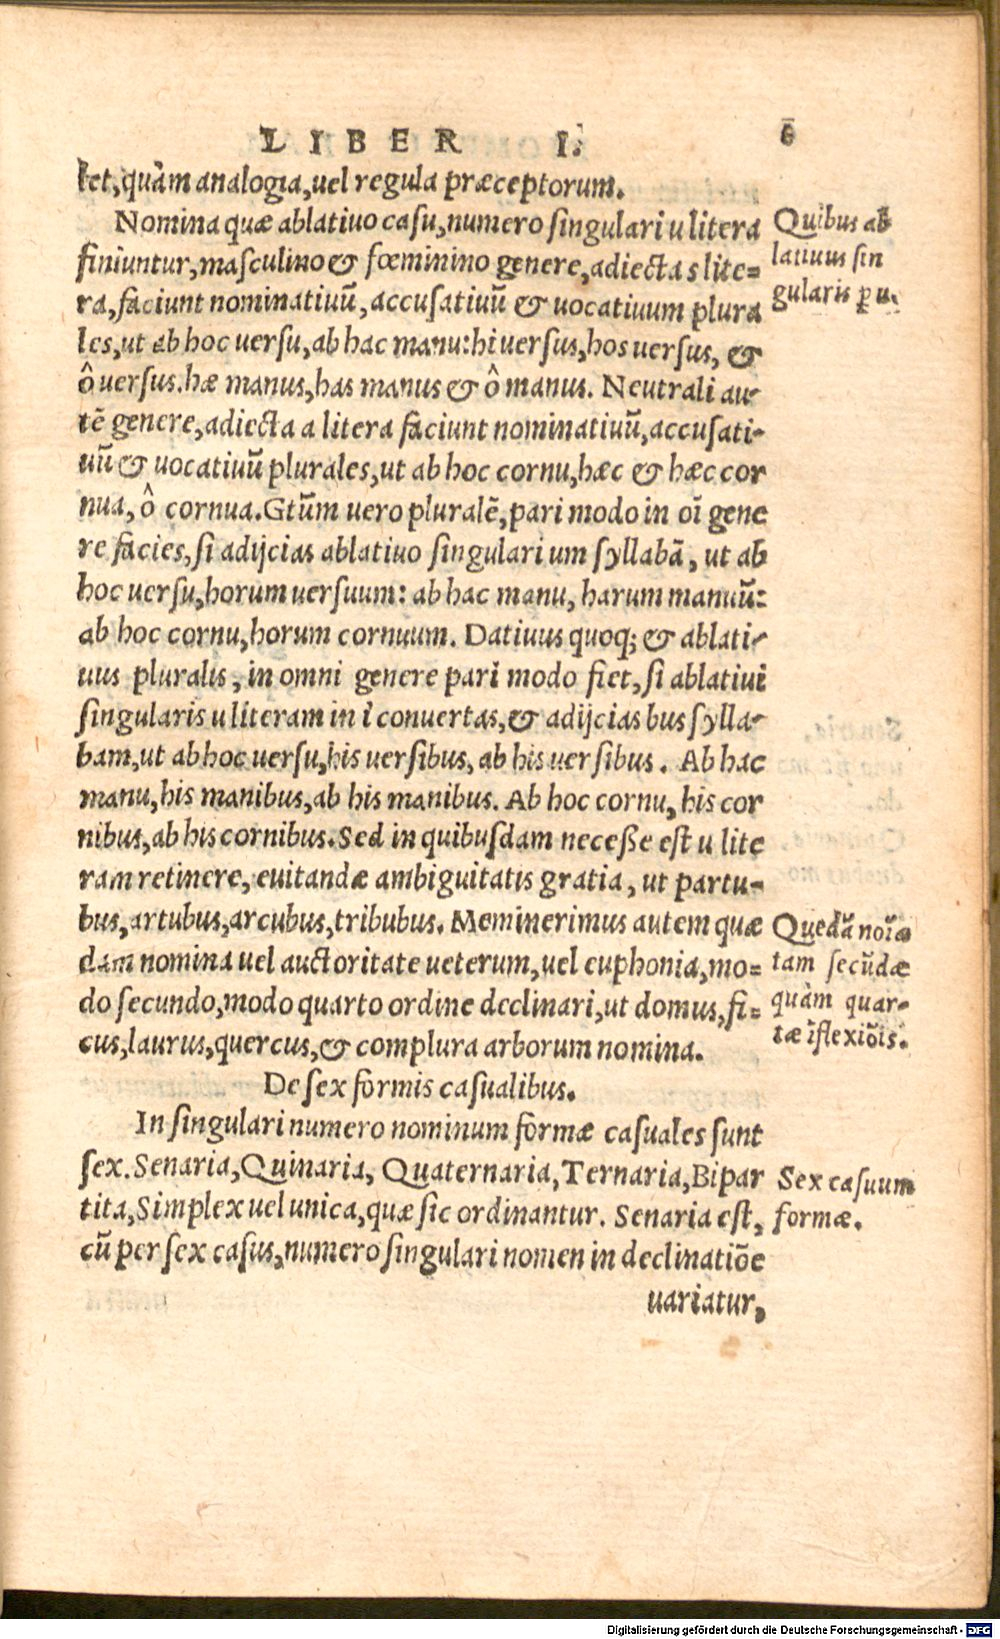 LIBER I.
let, quàm analogia, uel regula præceptorum.
Nomina quæ ablatiuo casu, numero singulari u litera
finiuntur, masculino & fœminino genere, adiecta s lite=
ra, faciunt nominatiuū, accusatiuū & uocatiuum plura
les, ut ab hoc uersu, ab hac manu: hi uersus, hos uersus, &
ô uersus. hæ manus, has manus & ô manus. Neutrali au-
tē genere, adiecta a litera faciunt nominatiuū, accusati-
uū & uocatiuū plurales, ut ab hoc cornu, hæc & hæc cor
nua, ô cornua. Gtūm uero pluralē, pari modo in oī gene
re facies, si adijcias ablatiuo singulari um syllabā, ut ab
hoc uersu, horum uersuum: ab hac manu, harum manuū:
ab hoc cornu, horum cornuum. Datiuus quoq; & ablati-
uus pluralis, in omni genere pari modo fiet, si ablatiui
singularis u literam in i conuertas, & adijcias bus sylla-
bam, ut ab hoc uersu, his uersibus, ab his uersibus. Ab hac
manu, his manibus, ab his manibus. Ab hoc cornu, his cor
nibus, ab his cornibus. Sed in quibusdam neceße est u lite
ram retinere, euitandæ ambiguitatis gratia, ut partu-
bus, artubus, arcubus, tribubus. Meminerimus autem quæ
dam nomina uel auctoritate ueterum, uel euphonia, mo=
do secundo, modo quarto ordine declinari, ut domus, fi=
cus, laurus, quercus, & complura arborum nomina.
De sex formis casualibus.
In singulari numero nominum formæ casuales sunt
sex. Senaria, Quinaria, Quaternaria, Ternaria, Bipar
tita, Simplex uel unica, quæ sic ordinantur. Senaria est,
cū per sex casus, numero singulari nomen in declinatiōe
uariatur,
Quibus ab
latiuus sin
gularis p u.
Quedā noīa
tam secūdæ
quàm quar-
tæ īflexiōis.
Sex casuum
formæ.
Digitalisierung gefördert durch die Deutsche Forschungsgemeinschaft - DFG